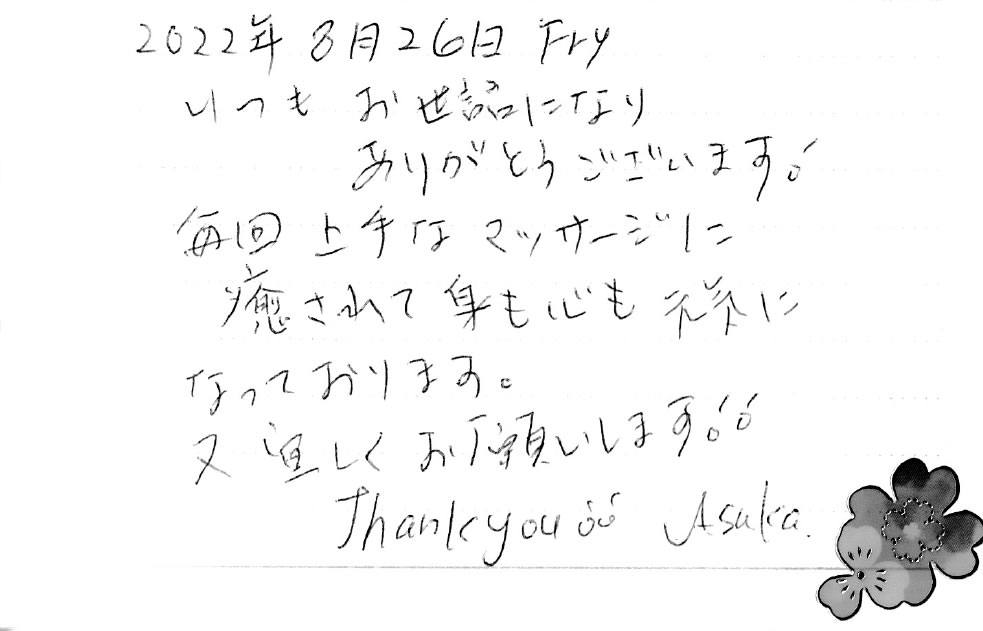 2022年 8月26日 Fry
いつも お世話になり
ありがとうございます!
毎回 上手な マッサージに
癒されて 身も心も 元気に
なっております。
又 宜しく お願いします!!
Thank you!! Asuka.